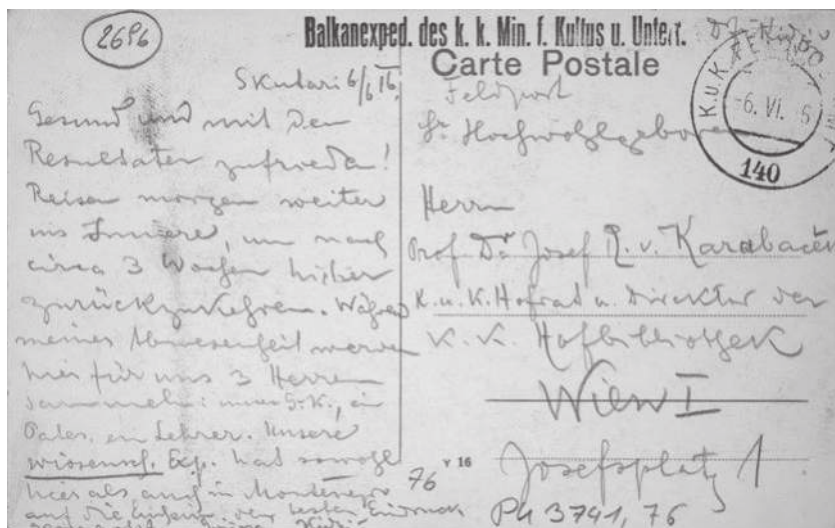 2696
Balkanexped. des k. k. Min. f. Kultus u. Untert.
Carte Postale
Skutari 6/6 16.
Gesund und mit den
Resultaten zufrieden!
Reisen morgen weiter
ins Innere, um nach
circa 3 Wochen hieher
zurückzukehren. Während
meiner Abwesenheit werden
hier für uns 3 Herren
sammeln: ein
Pater, ein Lehrer. Unsere
wissensch. Exp. hat sowohl
hier als auch in Montenegro
auf die besten Eindruck
Feldpost
Sr. Hochwohlgeboren
Herrn
Prof Dr Josef R. v. Karabaček
K. u. K. Hofrat u. Direktor der
K. K. Hofbibliothek
Wien I
Josefsplatz 1
K.u.K.
6. VI.
140
76
V 16
Ph 3741, 76